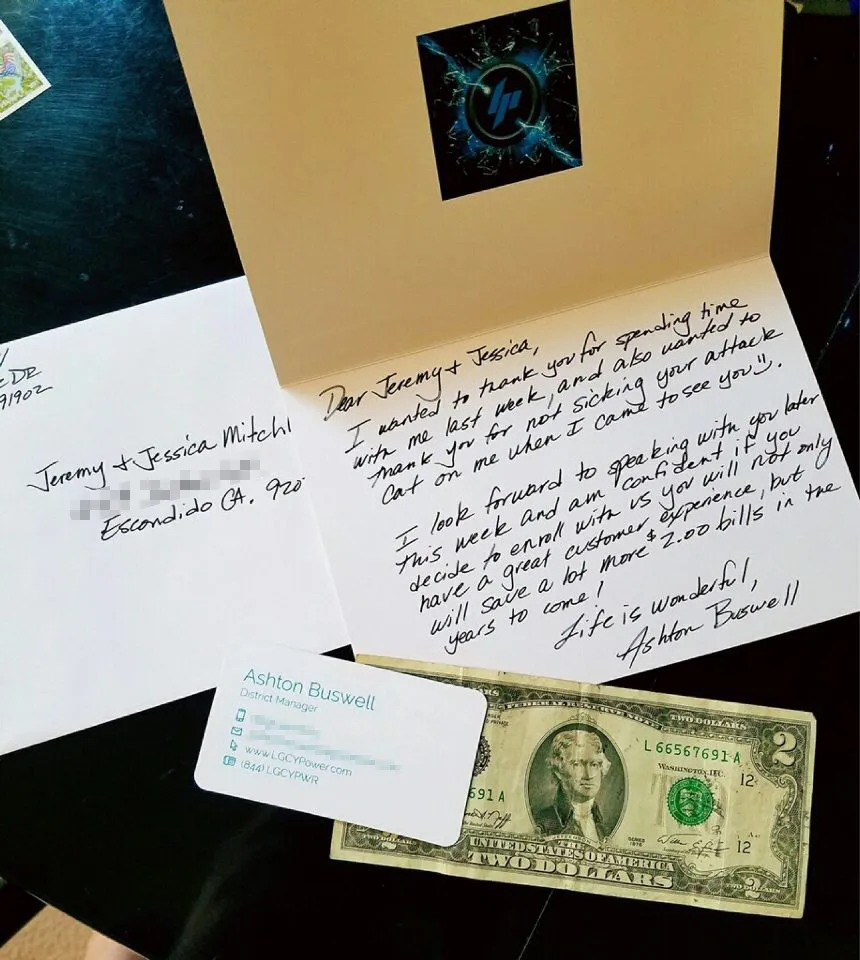 Dear Jeremy + Jessica,
I wanted to thank you for spending time
with me last week, and also wanted to
thank you for not sicking your attack
cat on me when I came to see you.
I look forward to speaking with you later
this week and am confident if you
decide to enroll with us you will not only
have a great customer experience, but
will save a lot more $2.00 bills in the
years to come!
Life is wonderful,
Ashton Buswell
DR
91902
Jeremy + Jessica Mitchl
Escondido CA. 920
Ashton Buswell
District Manager
www.LGCYPower.com
(844) LGCYPWR
FEDERAL RESERVE NOTE
TWO DOLLARS
2
L 66567691 A
WASHINGTON, D.C.
12
691 A
SERIES
1976
12
THE
UNITED STATES OF AMERICA
TWO DOLLARS
TWO DOLLARS
2
TWO DOLLARS
2